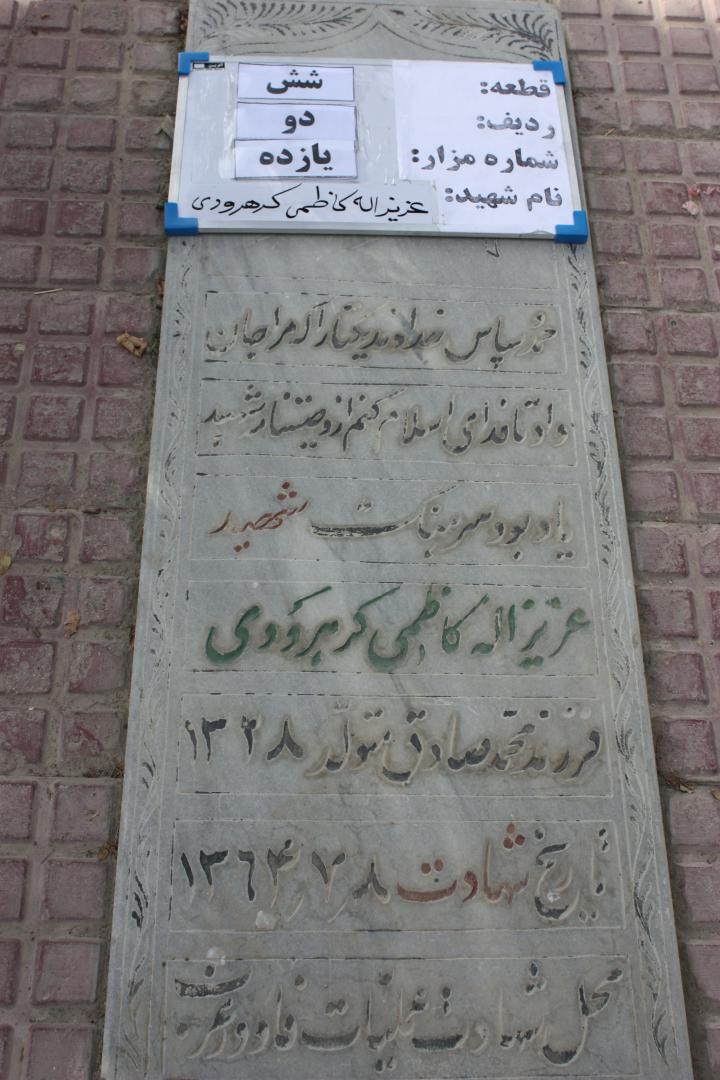 قطعه: شش
ردیف: دو
شماره مزار: یازده
نام شهید: عزیز اله کاظمی کرهرودی
حمد و سپاس خداوند یکتا را که مرا جان
داد تا فدای اسلام کنم از وصیتنامه شهید
یاد بود سرهنگ شهید
عزیز اله کاظمی کرهرودی
فرزند محمد صادق متولد ۱۳۲۸
تاریخ شهادت ۱۳۶۴/۷/۸
محل شهادت عملیات قادر